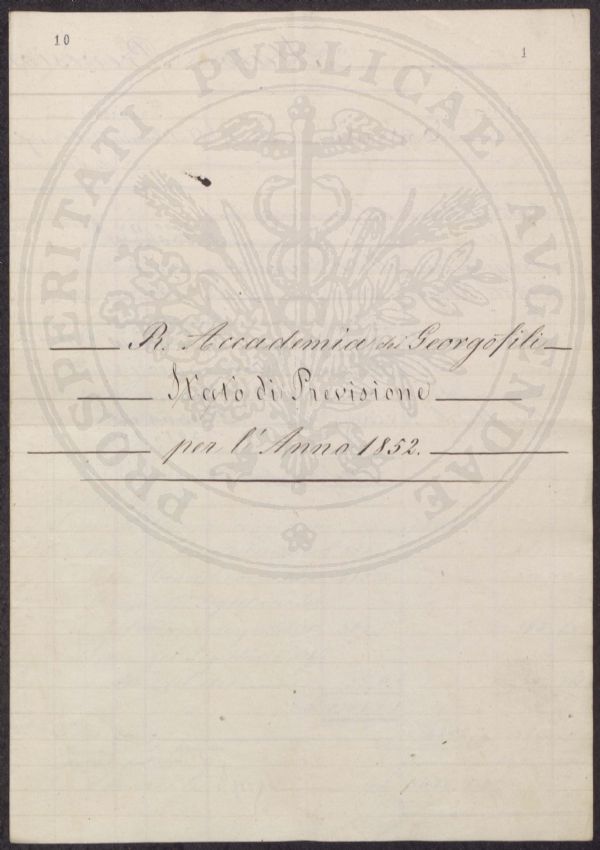 10
1
PROSPERITATI PVBLICAE AVGENDAE
R. Accademia dei Georgofili
Stato di Previsione
per l'Anno 1852.